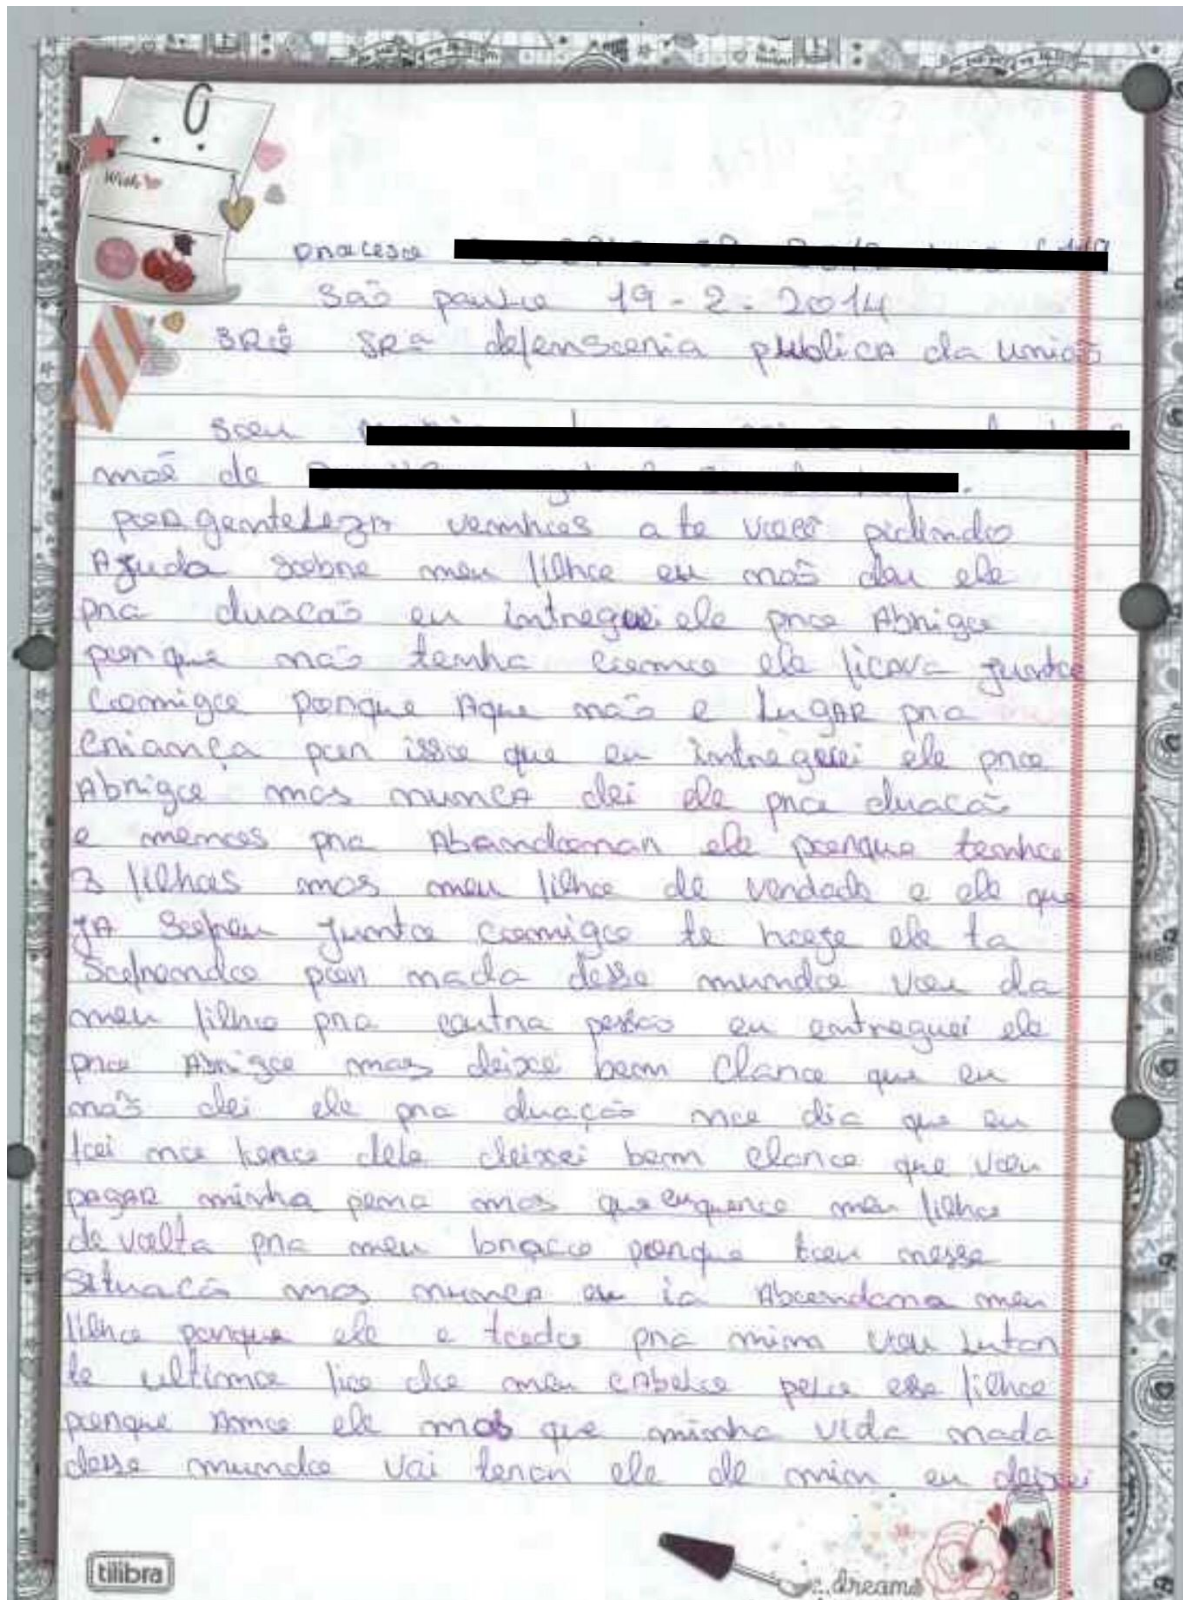 Wish
processo
São paulo 19-2-2014
SRº SRª defensoria publica da união
sou
mãe de
por genteleza venhos a te você pidindo
Ajuda sobre meu filho eu não deu ele
pra duacão eu intreguei ele pro Abrigo
porque não tenha como ele ficava junto
Comigo porque Aque não e LugAR pra
criança por isso que eu intreguei ele pro
Abrigo mas nunca dei ele pra duacão
e menos pra Abandonar ele porque tenho
3 filhos mas meu filho de verdade e ele que
JA Sofreu junto comigo te hoze ele ta
Sofrendo por nada desse mundo vou da
meu filho pra outra pessoa eu entreguei ele
pro Abrigo mas deixe bem Claro que eu
não dei ele pra duação no dia que eu
foi no foro dele deixei bem claro que vou
pagar minha pena mas que euquero meu filho
de volta pra meu braço porque tou nessa
Situacão mas nunca eu ia Abandona meu
filho porque ele e todo pra mim vou lutar
te ultimo fio do meu cabelo pelo esse filho
porque Amo ele mas que minha vida nada
desse mundo vai terar ele de mim eu deixei
tilibra
dreams